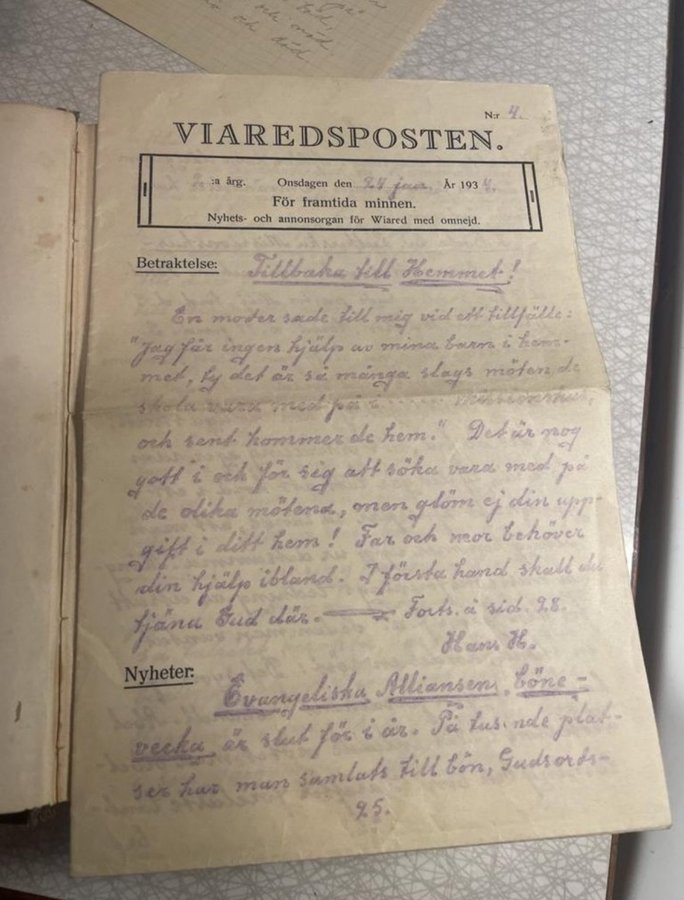 N:r 4.
VIAREDSPOSTEN.
:a årg. Onsdagen den 24 jan. År 1934.
För framtida minnen.
Nyhets- och annonsorgan för Wiared med omnejd.
Betraktelse: Tillbaka till Hemmet!
En moder sade till mig vid ett tillfälle:
"Jag får ingen hjälp av mina barn i hem-
met, ty det är så många slags möten de
skola vara med på i
och sent kommer de hem." Det är nog
gott i och för sig att söka vara med på
de olika mötena, men glöm ej din upp-
gift i ditt hem! Far och mor behöver
din hjälp ibland. I första hand skall du
tjäna Gud där. Forts. å sid. 28.
Hans H.
Nyheter:
Evangeliska Alliansens böne-
vecka är slut för i år. På tusende plat-
ser har man samlats till bön, Gudsords-
25.